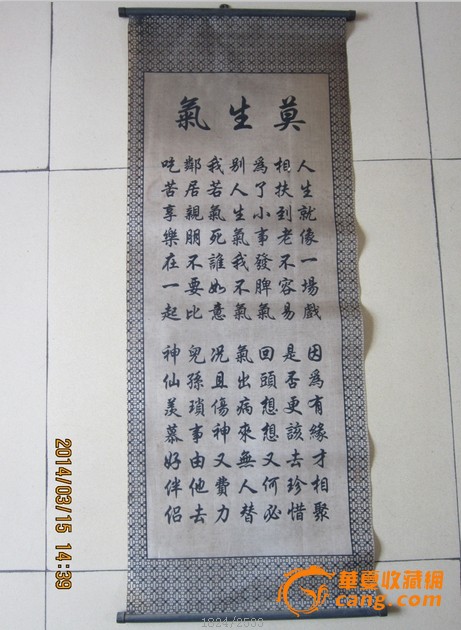 莫生氣
人生就像一場戲
因為有緣才相聚
相扶到老不容易
是否更該去珍惜
為了小事發脾氣
回頭想想又何必
别人生氣我不氣
氣出病來無人替
我若氣死誰如意
況且傷神又費力
鄰居親朋不要比
兒孫瑣事由他去
吃苦享樂在一起
神仙羨慕好伴侶
2014/03/15 14:39
華夏收藏網
cang.com